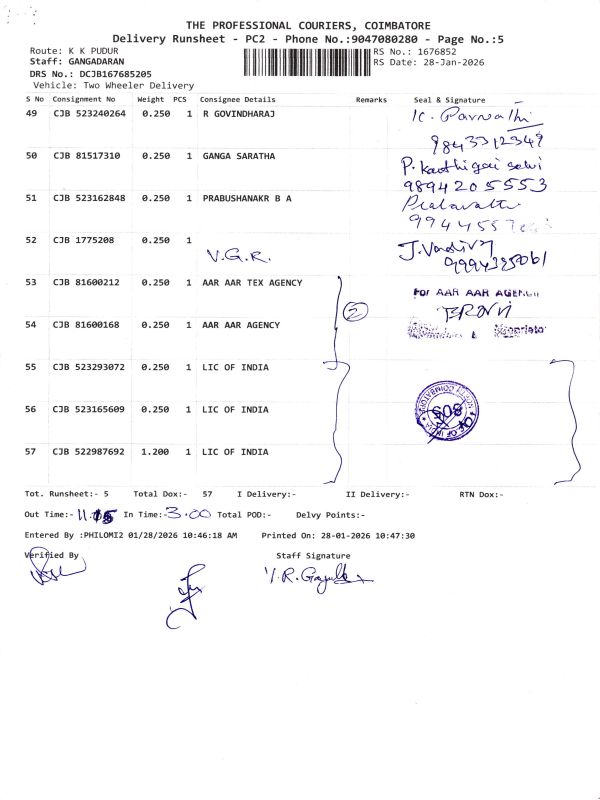 THE PROFESSIONAL COURIERS, COIMBATORE
Delivery Runsheet - PC2 - Phone No.:9047080280 - Page No.:5
Route: K K PUDUR RS No.: 1676852
Staff: GANGADARAN RS Date: 28-Jan-2026
DRS No.: DCJB167685205
Vehicle: Two Wheeler Delivery
S No Consignment No Weight PCS Consignee Details Remarks Seal & Signature
49 CJB 523240264 0.250 1 R GOVINDHARAJ K. Parvathi
9843312349
50 CJB 81517310 0.250 1 GANGA SARATHA P. Kaothigai selvi
9894205553
51 CJB 523162848 0.250 1 PRABUSHANAKR B A
52 CJB 1775208 0.250 1 V.G.R.
53 CJB 81600212 0.250 1 AAR AAR TEX AGENCY For AAR AAR AGENCY
2
54 CJB 81600168 0.250 1 AAR AAR AGENCY
55 CJB 523293072 0.250 1 LIC OF INDIA
56 CJB 523165609 0.250 1 LIC OF INDIA
57 CJB 522987692 1.200 1 LIC OF INDIA
Tot. Runsheet:- 5 Total Dox:- 57 I Delivery:- II Delivery:- RTN Dox:-
Out Time:- 11.15 In Time:- 3.00 Total POD:- Delvy Points:-
Entered By :PHILOMI2 01/28/2026 10:46:18 AM Printed On: 28-01-2026 10:47:30
Verified By Staff Signature